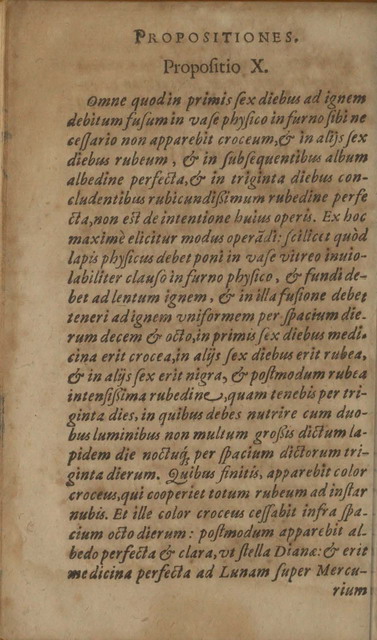 PROPOSITIONES.
Propoſitio X.
Omne quod in primis ſex diebus ad ignem
debitum fuſum in vaſe phyſico in furno ſibi ne
ceſſario non apparebit croceum, & in alijs ſex
diebus rubeum, & in ſubſequentibus album
albedine perfecta, & in triginta diebus con-
cludentibus rubicundißimum rubedine perfe
cta, non eſt de intentione huius operis. Ex hoc
maximè elicitur modus operãdi: ſcilicet quòd
lapis phyſicus debet poni in vaſe vitreo inuio-
labiliter clauſo in furno phyſico, & fundi de-
bet ad lentum ignem, & in illa fuſione debet
teneri ad ignem vniformem per ſpacium die-
rum decem & octo, in primis ſex diebus medi-
cina erit crocea, in alijs ſex diebus erit rubea,
& in alijs ſex erit nigra, & poſtmodum rubea
intenſißima rubedine, quam tenebis per tri-
ginta dies, in quibus debes nutrire cum duo-
bus luminibus non multum großis dictum la-
pidem die noctuq́, per ſpacium dictorum tri-
ginta dierum. Quibus finitis, apparebit color
croceus, qui cooperiet totum rubeum ad inſtar
nubis. Et ille color croceus ceſſabit infra ſpa-
cium octo dierum: poſtmodum apparebit al-
bedo perfecta & clara, vt ſtella Dianæ: & erit
medicina perfecta ad Lunam ſuper Mercu-
rium